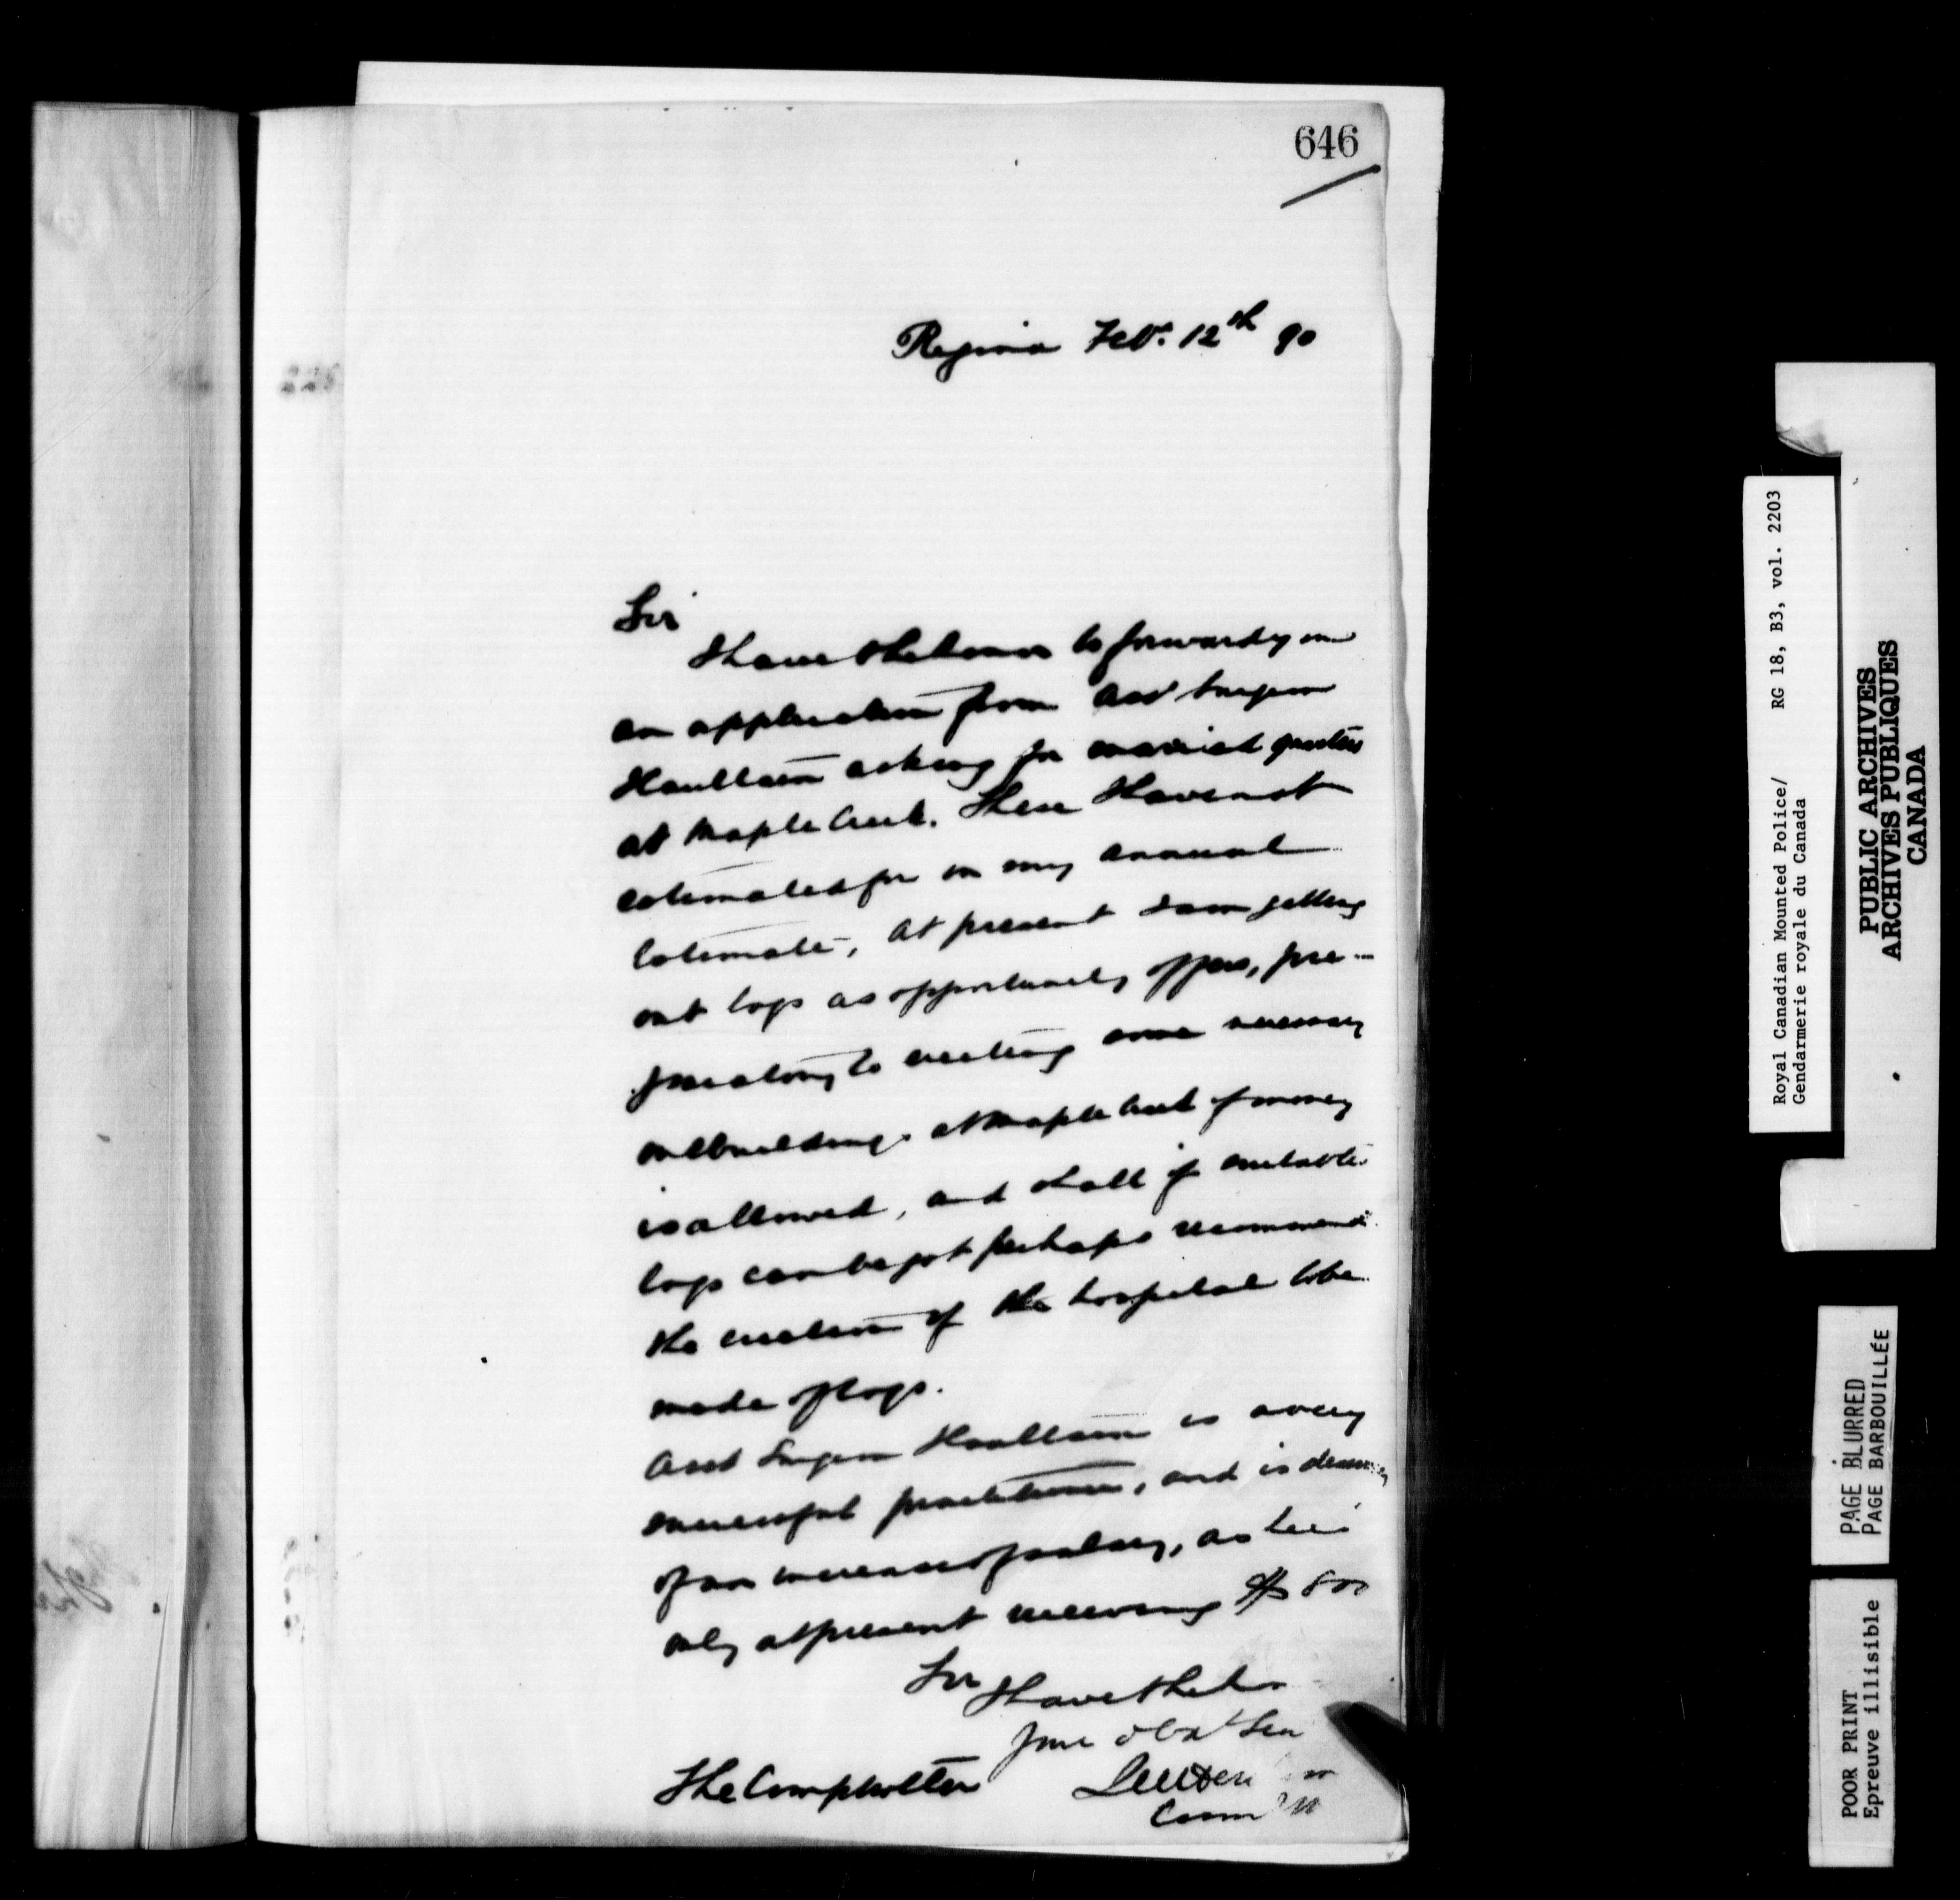 646
Regina Feby. 12th 90
Sir
I have the honor to forward you
an application from Asst Surgeon
Haultain asking for married quarters
at Maple Creek. These I have not
estimated for in my annual
Estimate, At present I am getting
out logs as opportunity offers, pre-
paratory to erecting some necessary
outbuildings at Maple Creek if money
is allowed, and shall if suitable
logs can be got perhaps recommend
the erection of the hospital to be
made of logs.
Asst Surgeon Haultain is a very
successful practitioner, and is deserving
of an increase of salary, as he is
only at present receiving $ 800
Sir
I have the
your obdt Ser
The Comptroller
Comm
Royal Canadian Mounted Police/ RG 18, B3, vol. 2203
Gendarmerie royale du Canada
PUBLIC ARCHIVES
ARCHIVES PUBLIQUES
CANADA
PAGE BLURRED
PAGE BARBOUILLÉE
POOR PRINT
Epreuve illisible